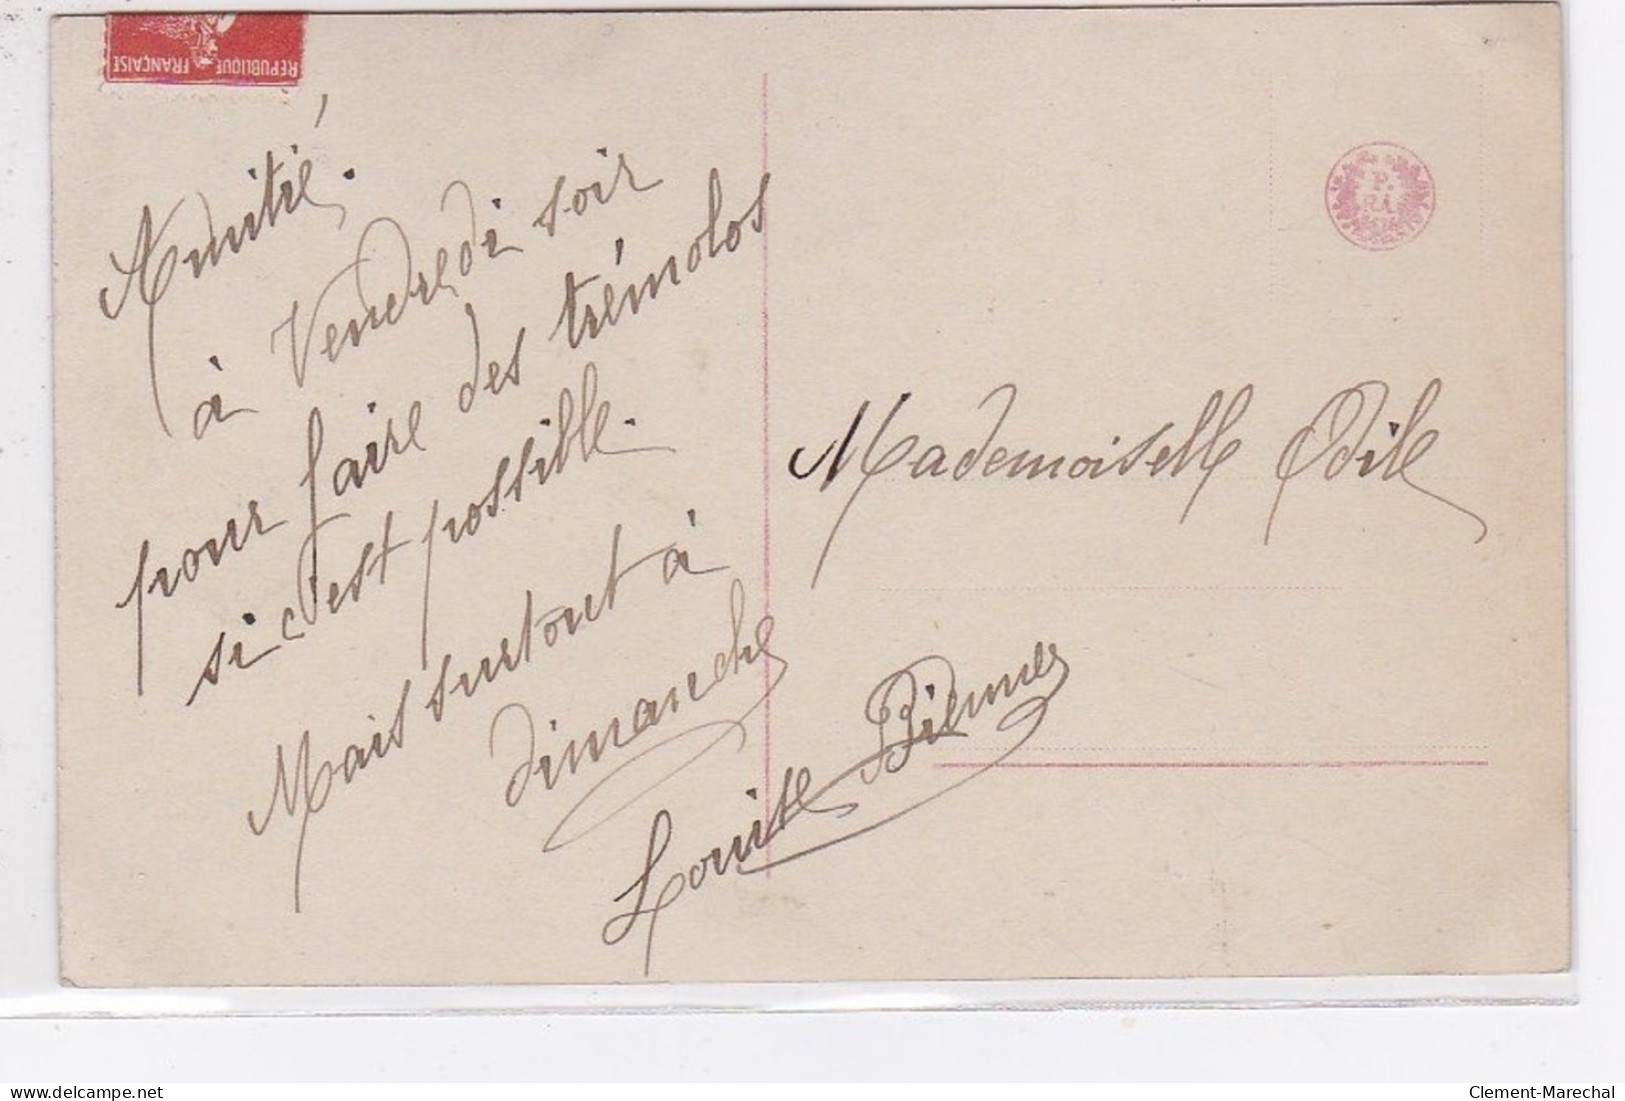 REPUBLIQUE FRANÇAISE
Amitié.
à Vendredi soir
pour faire des trémolos
si c'est possible.
Mais surtout à
dimanche
Mademoiselle Odile
P.
Clement-Marechal